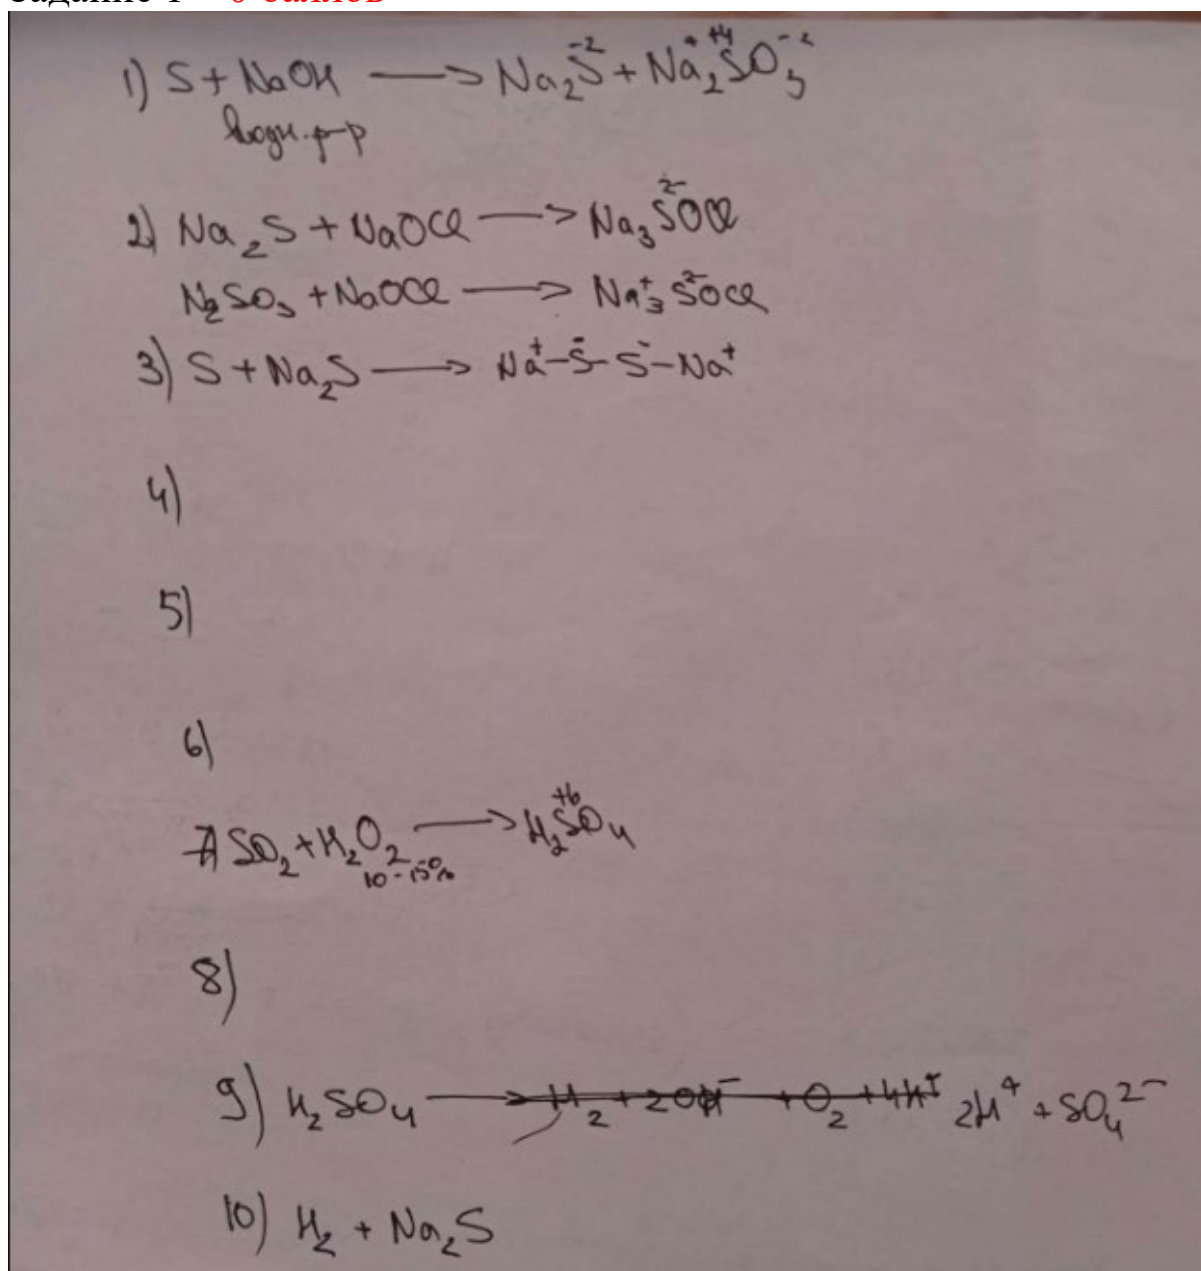 1) S + NaOH ⟶ Na₂S⁻² + Na₂⁺S⁺⁴O₃⁻²
водн. р-р
2) Na₂S + NaOCl ⟶ Na₃S²⁻OCl
N₂SO₃ + NaOCl ⟶ Na⁺₃S²⁻OCl
3) S + Na₂S ⟶ Na⁺-S⁻-S⁻-Na⁺
4)
5)
6)
7) SO₂ + H₂O₂ ⟶ H₂S⁺⁶O₄
10-15%
8)
9) H₂SO₄ ⟶ H₂ + 2OH⁻ + O₂ + 4H⁺ 2H⁺ + SO₄²⁻
10) H₂ + Na₂S